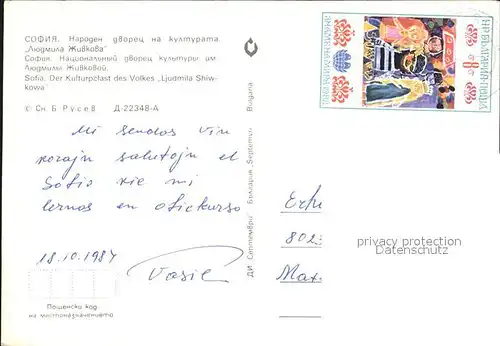 СОФИЯ. Народен дворец на културата
„Людмила Живкова"
София. Национальный дворец культуры им
Людмилы Живковой.
Sofia. Der Kulturpalast des Volkes „Ljudmila Shiw-
kowa"
© Сн. Б Русев Д-22348-А
Mi sendas vin
korajn salutojn el
Sofio kie mi
lernas en
18.10.1987
Пощенски код
на местоназначението
ДИ Септември България Septemvri Bulgaria
НР БЪЛГАРИЯ·ПОЩА
8
802
Max
privacy protection
Datenschutz